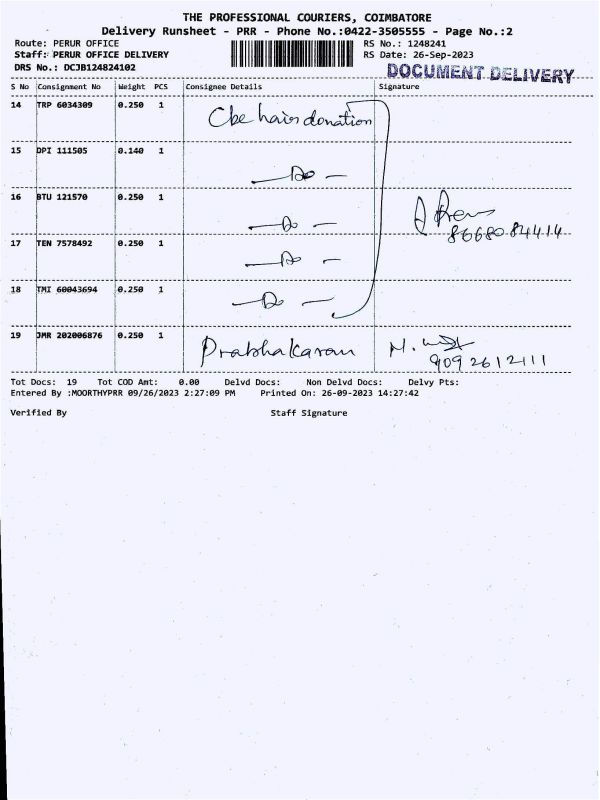 THE PROFESSIONAL COURIERS, COIMBATORE
Delivery Runsheet - PRR - Phone No.:0422-3505555 - Page No.:2
Route: PERUR OFFICE RS No.: 1248241
Staff: PERUR OFFICE DELIVERY RS Date: 26-Sep-2023
DRS No.: DCJB124824102
DOCUMENT DELIVERY
S No Consignment No Weight PCS Consignee Details Signature
14 TRP 6034309 0.250 1 Cbe hair donation
15 DPI 111505 0.140 1 — Do —
16 BTU 121570 0.250 1 — Do —
8668084414
17 TEN 7578492 0.250 1 — Do —
18 TMI 60043694 0.250 1 — Do —
19 JMR 202006876 0.250 1 Prabhakaran M.
9092612111
Tot Docs: 19 Tot COD Amt: 0.00 Delvd Docs: Non Delvd Docs: Delvy Pts:
Entered By :MOORTHYPRR 09/26/2023 2:27:09 PM Printed On: 26-09-2023 14:27:42
Verified By Staff Signature